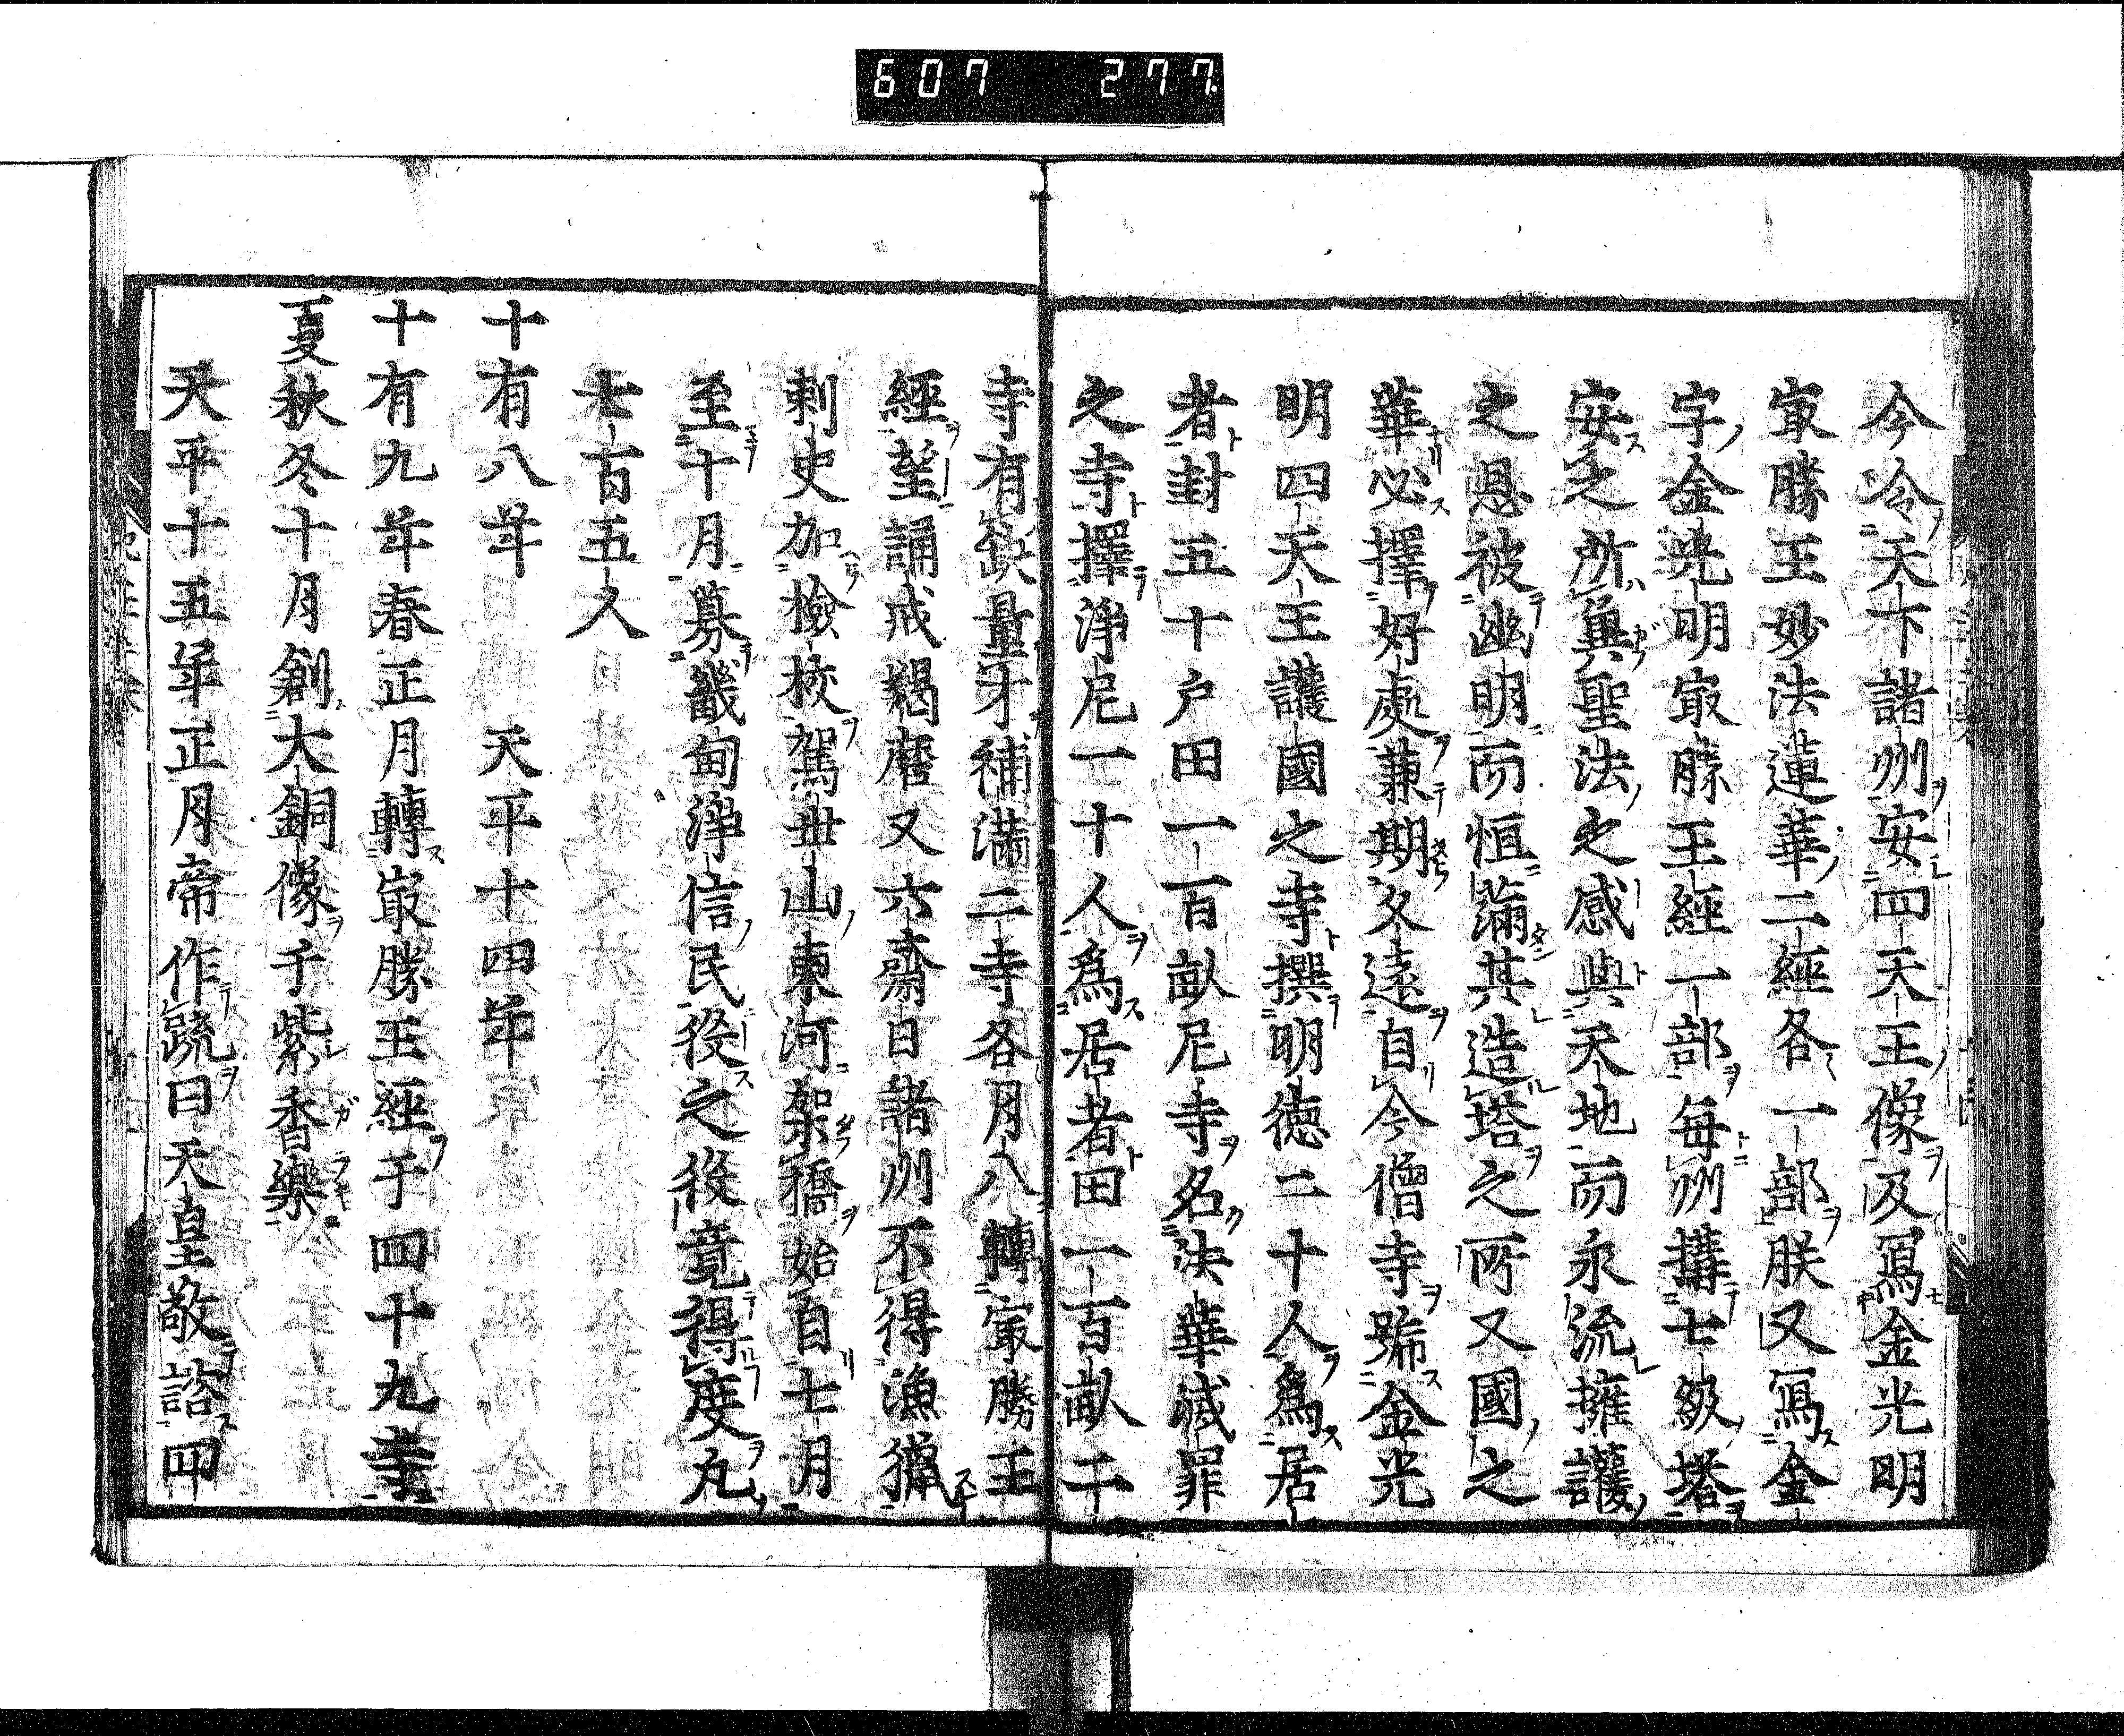 607 277
今冷天下諸州安四天王像及寫金光明
㝡勝王妙法蓮華二經各一部朕又寫金
字金光明㝡勝王經一部每州搆七級塔
安之所冀聖法之感與天地而永流擁護
之恩被幽明而恒滿其造塔之所又國之
華必擇好處兼期久遠自今僧寺號金光
明四天王護國之寺撰明德二十人爲居
者封五十戶田一百畝尼寺名法華滅罪
之寺擇淨尼一十人爲居者田一百畝二
寺有缺量才補滿二寺各月八轉㝡勝王
經望誦戒羯磨又六齋日諸州不得漁獵
刺史加檢校駕丗山東河架橋始自七月
至十月募畿甸淨信民役之役竟得度凡
七百五人
十有八年 天平十四年
十有九年春正月轉㝡勝王經于四十九寺
夏秋冬十月創大銅像于紫香樂
天平十五年正月帝作䟽曰天皇敬諮四